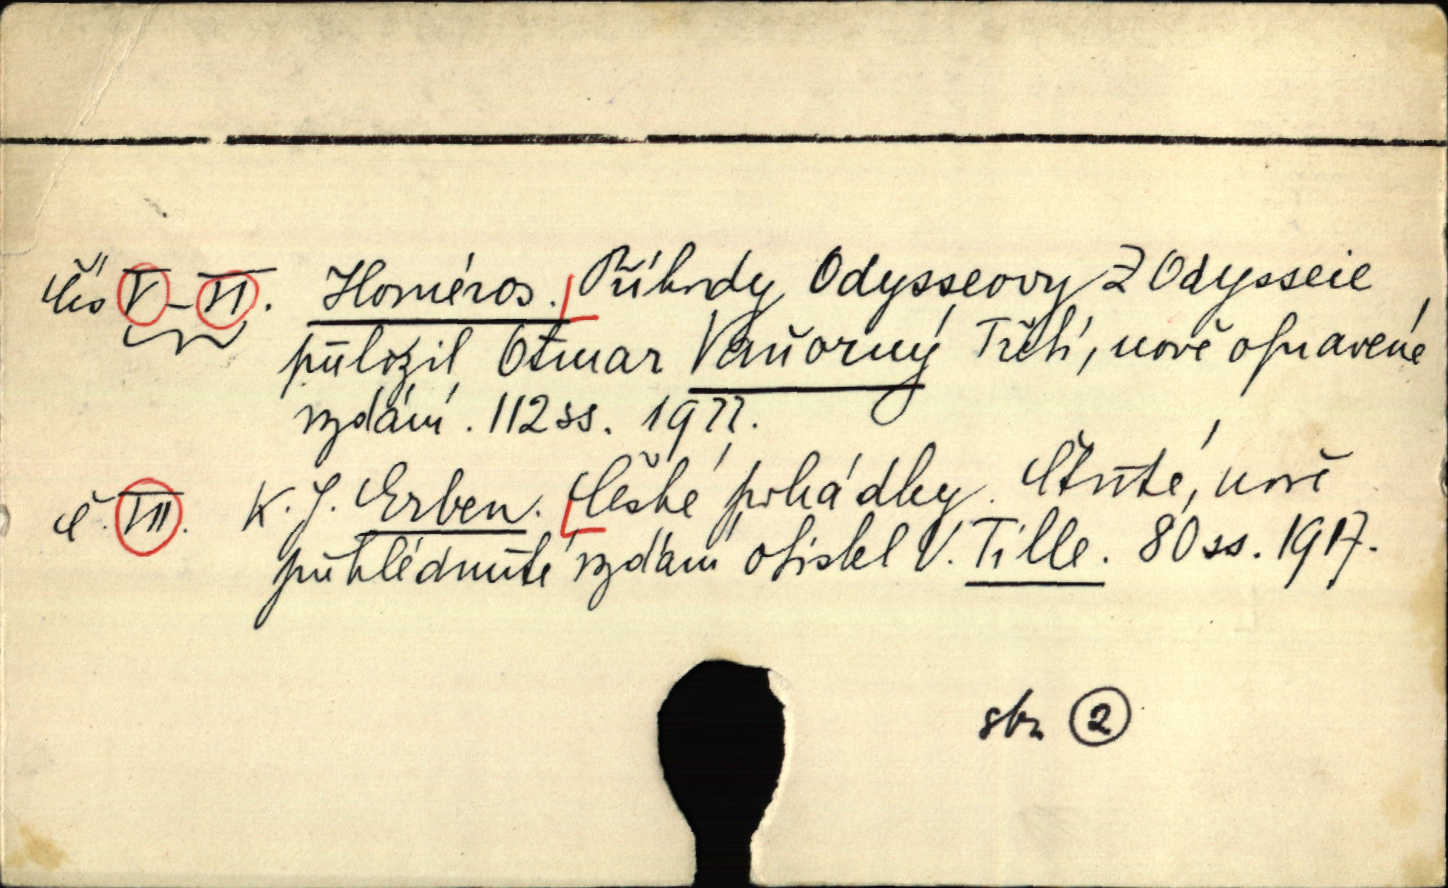 Čís V-VI. Homéros. Příhody Odysseovy Z Odysseie
přeložil Otmar Vaňorný Třetí, nově opravené
vydání. 112 ss. 1922.
č. VII. K. J. Erben. České pohádky. Čtvrté, nově
přehlédnuté vydání obstel V. Tille. 80 ss. 1917.
str 2